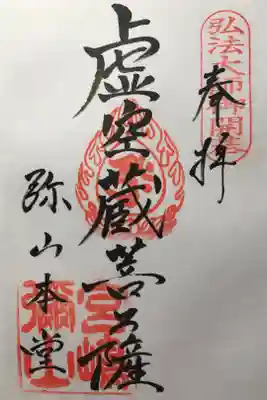 弘法大師御開基
奉拝
虚空蔵菩薩
弥山本堂
宮島
彌山